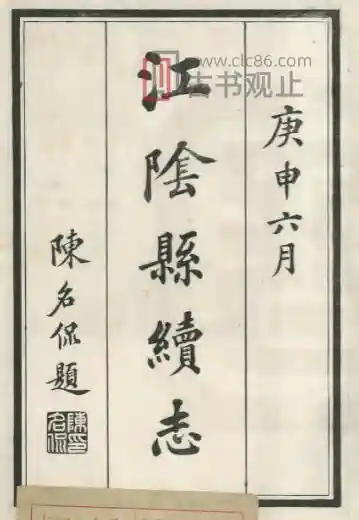 庚申六月
江陰縣續志
陳名侃題
陳印名侃
www.clc86.com
古书观止